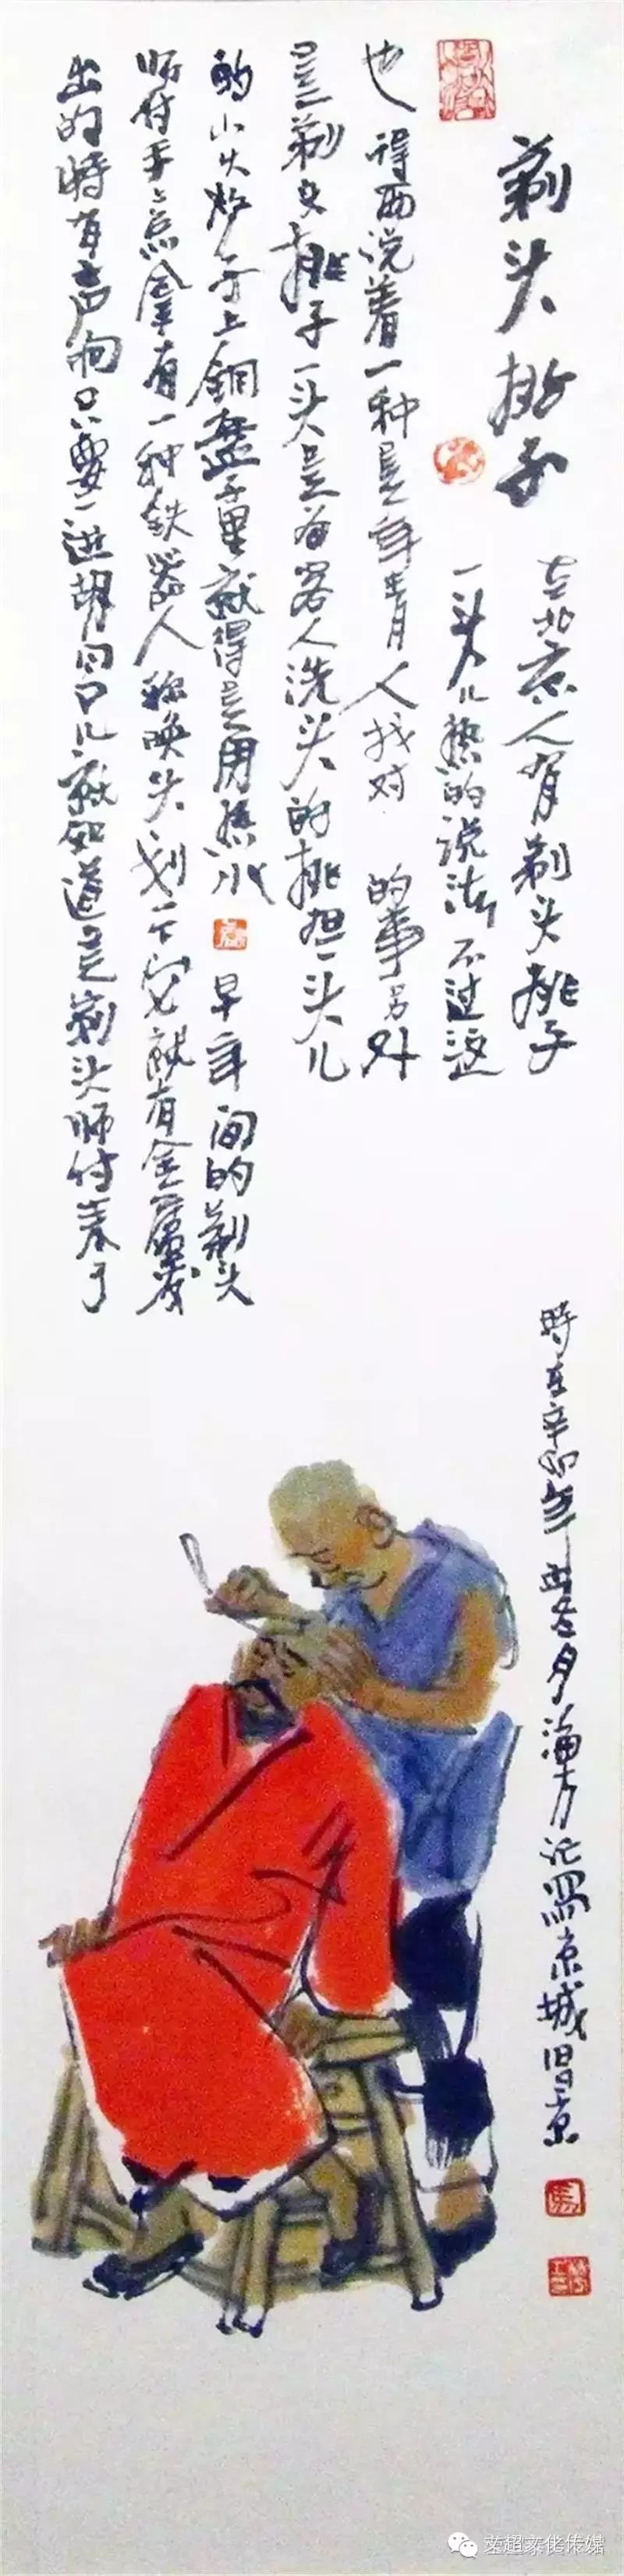 剃头挑子
在北京人有剃头挑子
一头儿热的说法 不过这
也得两说着一种是年青人找对 的事另外
是剃头挑子一头是为客人洗头的挑担一头儿
的小火炉子上铜盆子里就得是用热水
早年间的剃头
师付手上总拿有一种铁器人称唤头划一下它就有金属发
出的時有声响只要一进胡同口儿就知道是剃头师付来了
時在辛卯年 月 方记写京城旧景
荣超文化传媒